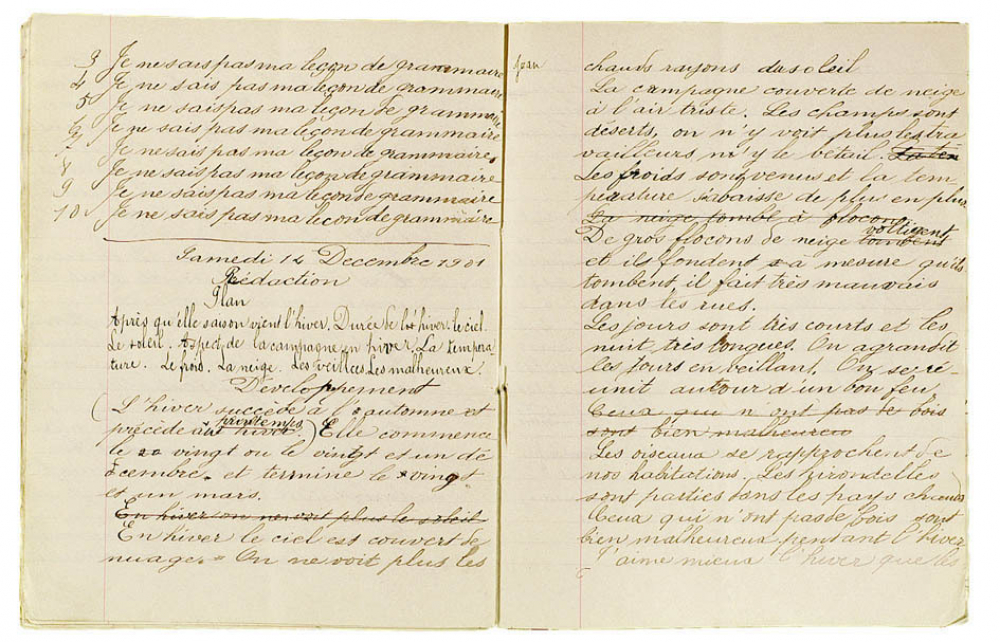 3 Je ne sais pas ma leçon de grammaire
4 Je ne sais pas ma leçon de grammaire
5 Je ne sais pas ma leçon de grammaire
6 Je ne sais pas ma leçon de grammaire
Je ne sais pas ma leçon de grammaire.
8 Je ne sais pas ma leçon de grammaire
9 Je ne sais pas ma leçon de grammaire
10 Je ne sais pas ma leçon de grammaire
Samedi 14 Decembre 1901
Rédaction
Plan
Après qu'elle saison vient l'hiver. Durée de l'hiver. le ciel.
Le soleil. Aspect de la campagne en hiver. La tempéra-
ture. Le froid. La neige. Les veillées. Les malheureux.
Développement
(L'hiver succède à l'automne et
précède au hiver printemps.) Elle commence
le vingt ou le vingt et un dé
cembre. et termine le vingt
et un mars.
En hiver on ne voit plus le soleil
En hiver le ciel est couvert de
nuage. On ne voit plus les
Jean
chauds rayons du soleil
La campagne couverte de neige
à l'air triste. Les champs sont
déserts, on n'y voit plus les tra
vailleurs ni y le bétail.
Les froids sont venus et la tem
pérature s'abaisse de plus en plus
La neige tombe à flocons
De gros flocons de neige tombent voltigent
et ils fondent à mesure qu'ils
tombent, il fait très mauvais
dans les rues.
Les jours sont très courts et les
nuit très longues. On agrandit
les jours en veillant. On se ré-
unit autour d'un bon feu.
Ceux qui n'ont pas de bois
sont bien malheureux
Les oiseaux se rapprochent de
nos habitations. Les hirondelles
sont parties dans les pays chauds
Ceux qui n'ont pas de bois sont
bien malheureux pendant l'hiver
J'aime mieux l'hiver que les